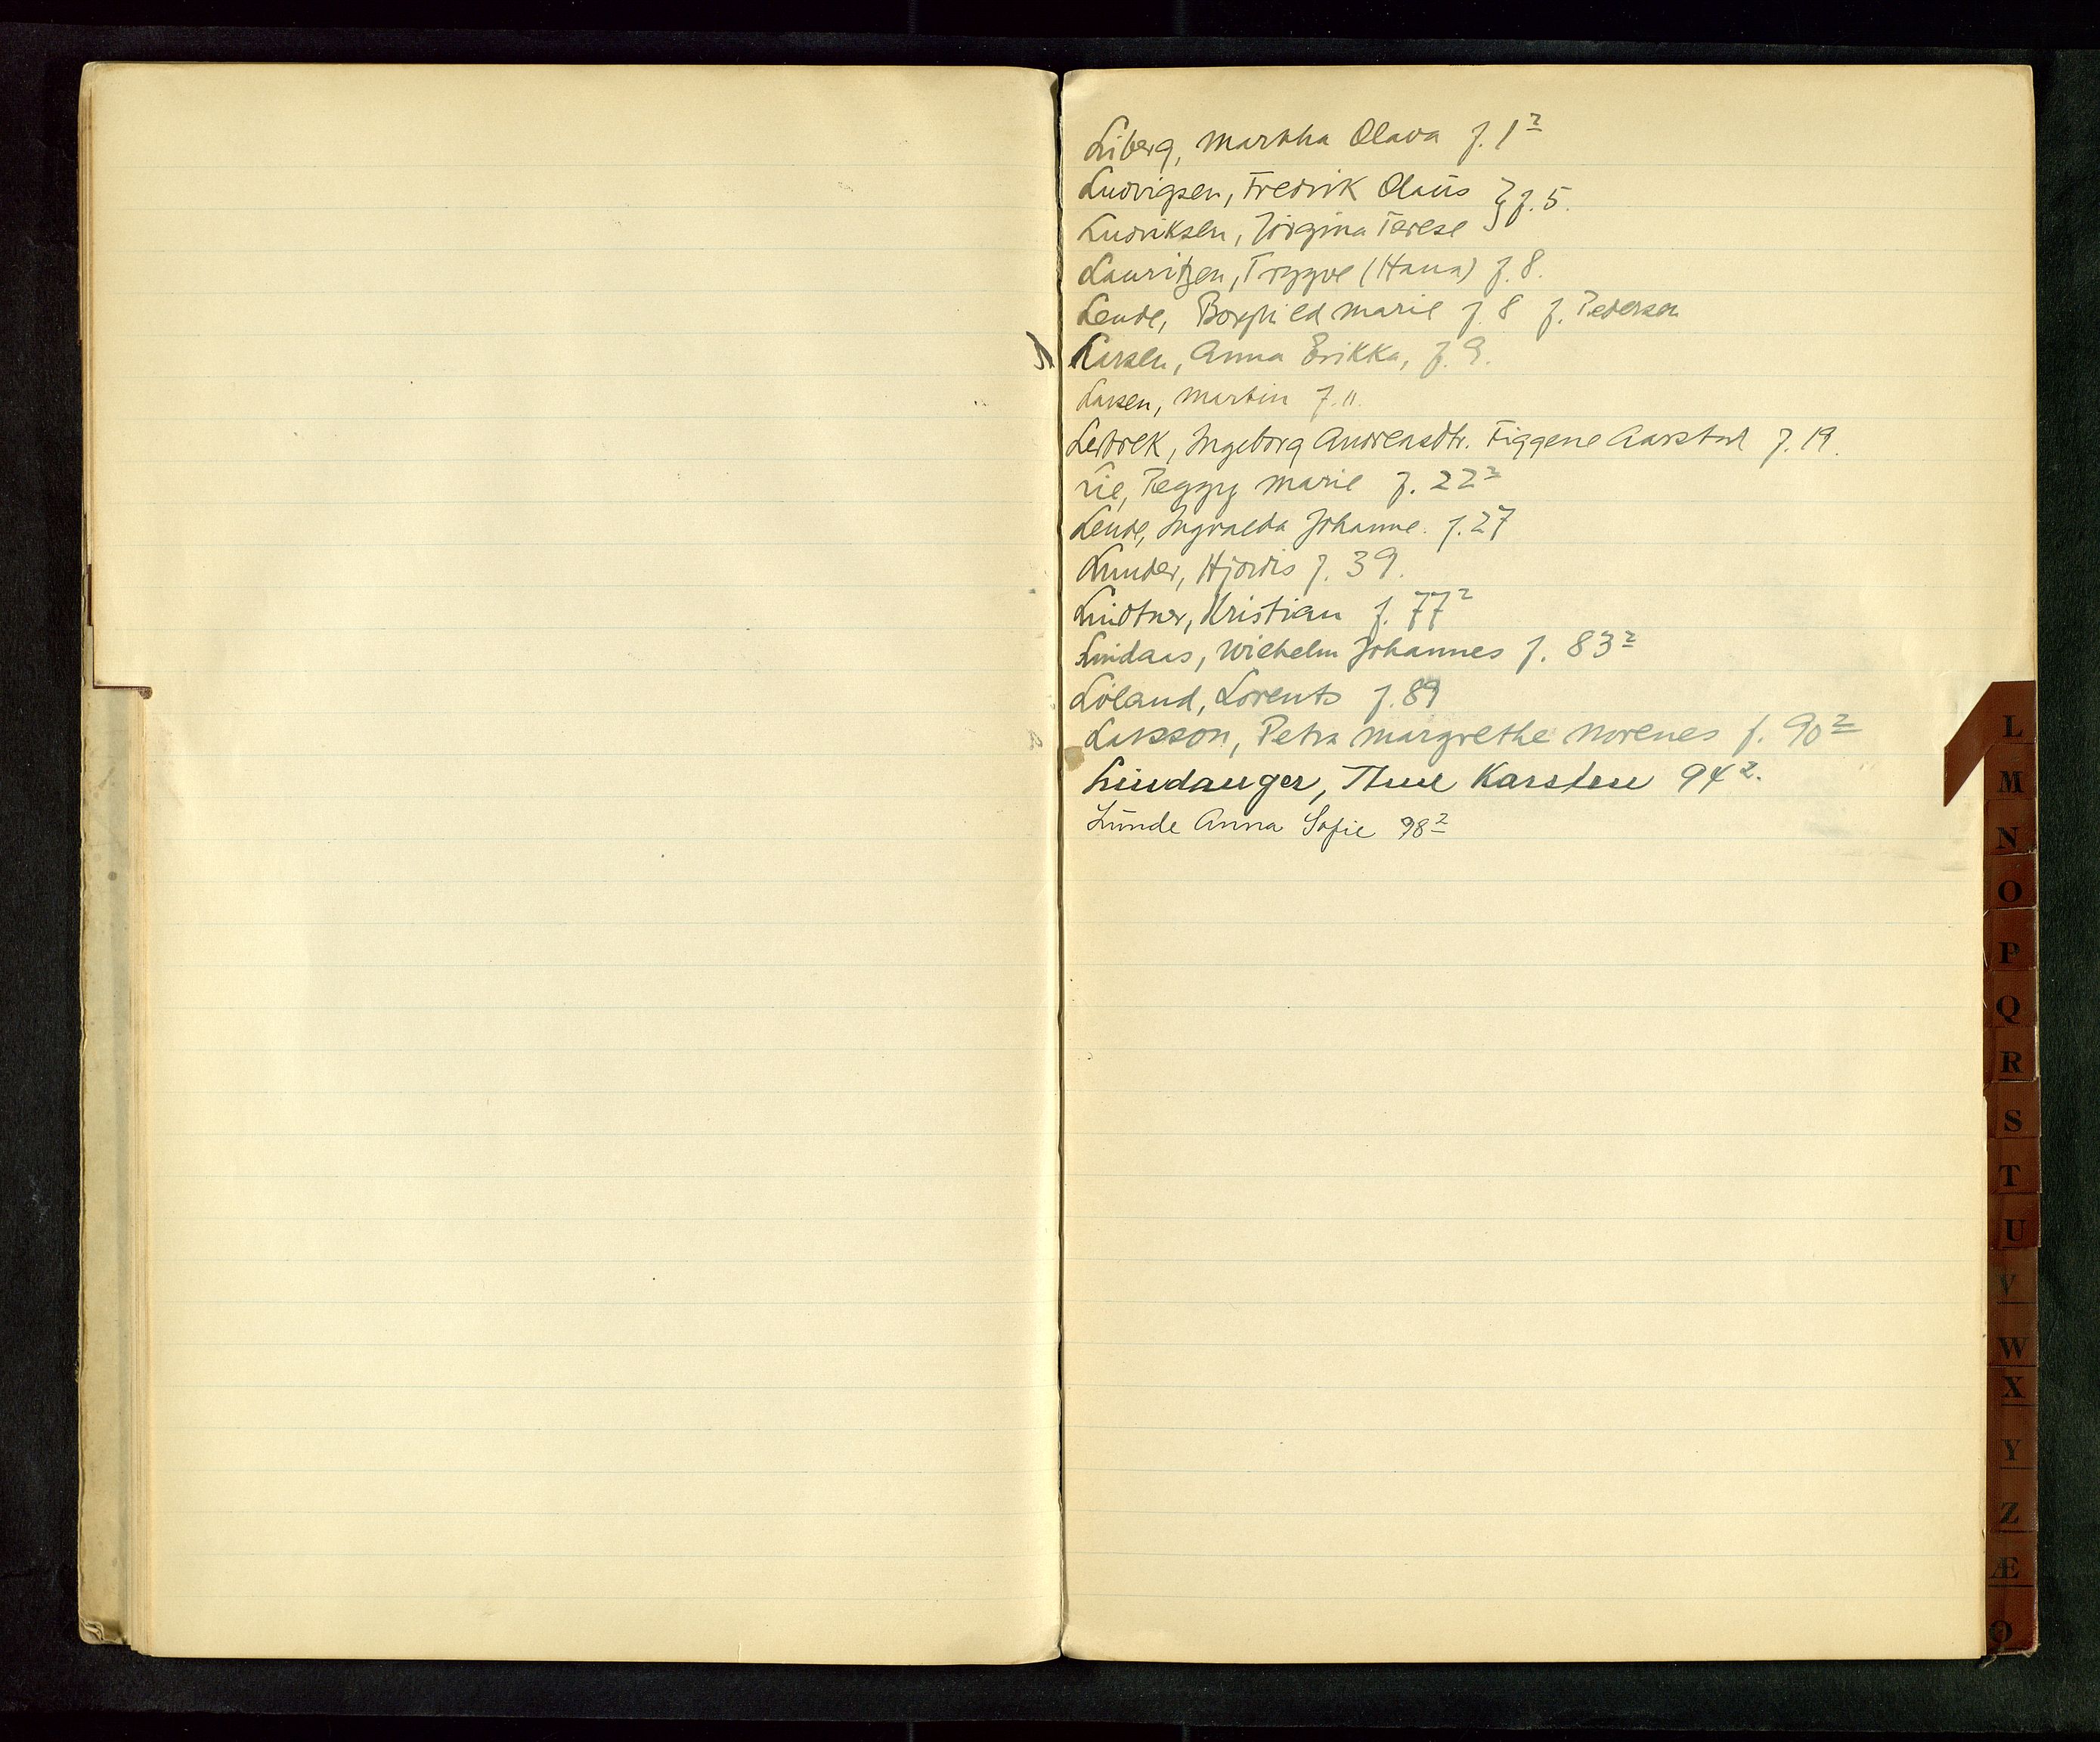 Liberg, Martha Olava f. 1²
Ludvigsen, Fredrik Olaüs } f. 5.
Ludviksen, Jörgina Terese
Lauritzen, Tryggve (Hana) f. 8.
Lende, Borghild Marie f. 8 f. Pedersen
Larsen, Anna Erikka, f. 9.
Larsen, Martin f. 11.
Ledrek, Ingeborg Andreasdtr. Figgene Aarstad f. 19.
Lie, Peggy Marie f. 22²
Lende, Ingvalda Johanne. f. 27
Lunder, Hjørdis f. 39.
Lindtner, Kristian f. 77²
Lindaas, Wilhelm Johannes f. 83²
Löland, Lorents f. 89
Larsson, Petra Margrethe Norenes f. 90²
Lindanger, Thue Karsten 94².
Lunde Anna Sofie 98²
L
M
N
O
P
Q
R
S
T
U
V
W
X
Y
Z
Æ
Ø